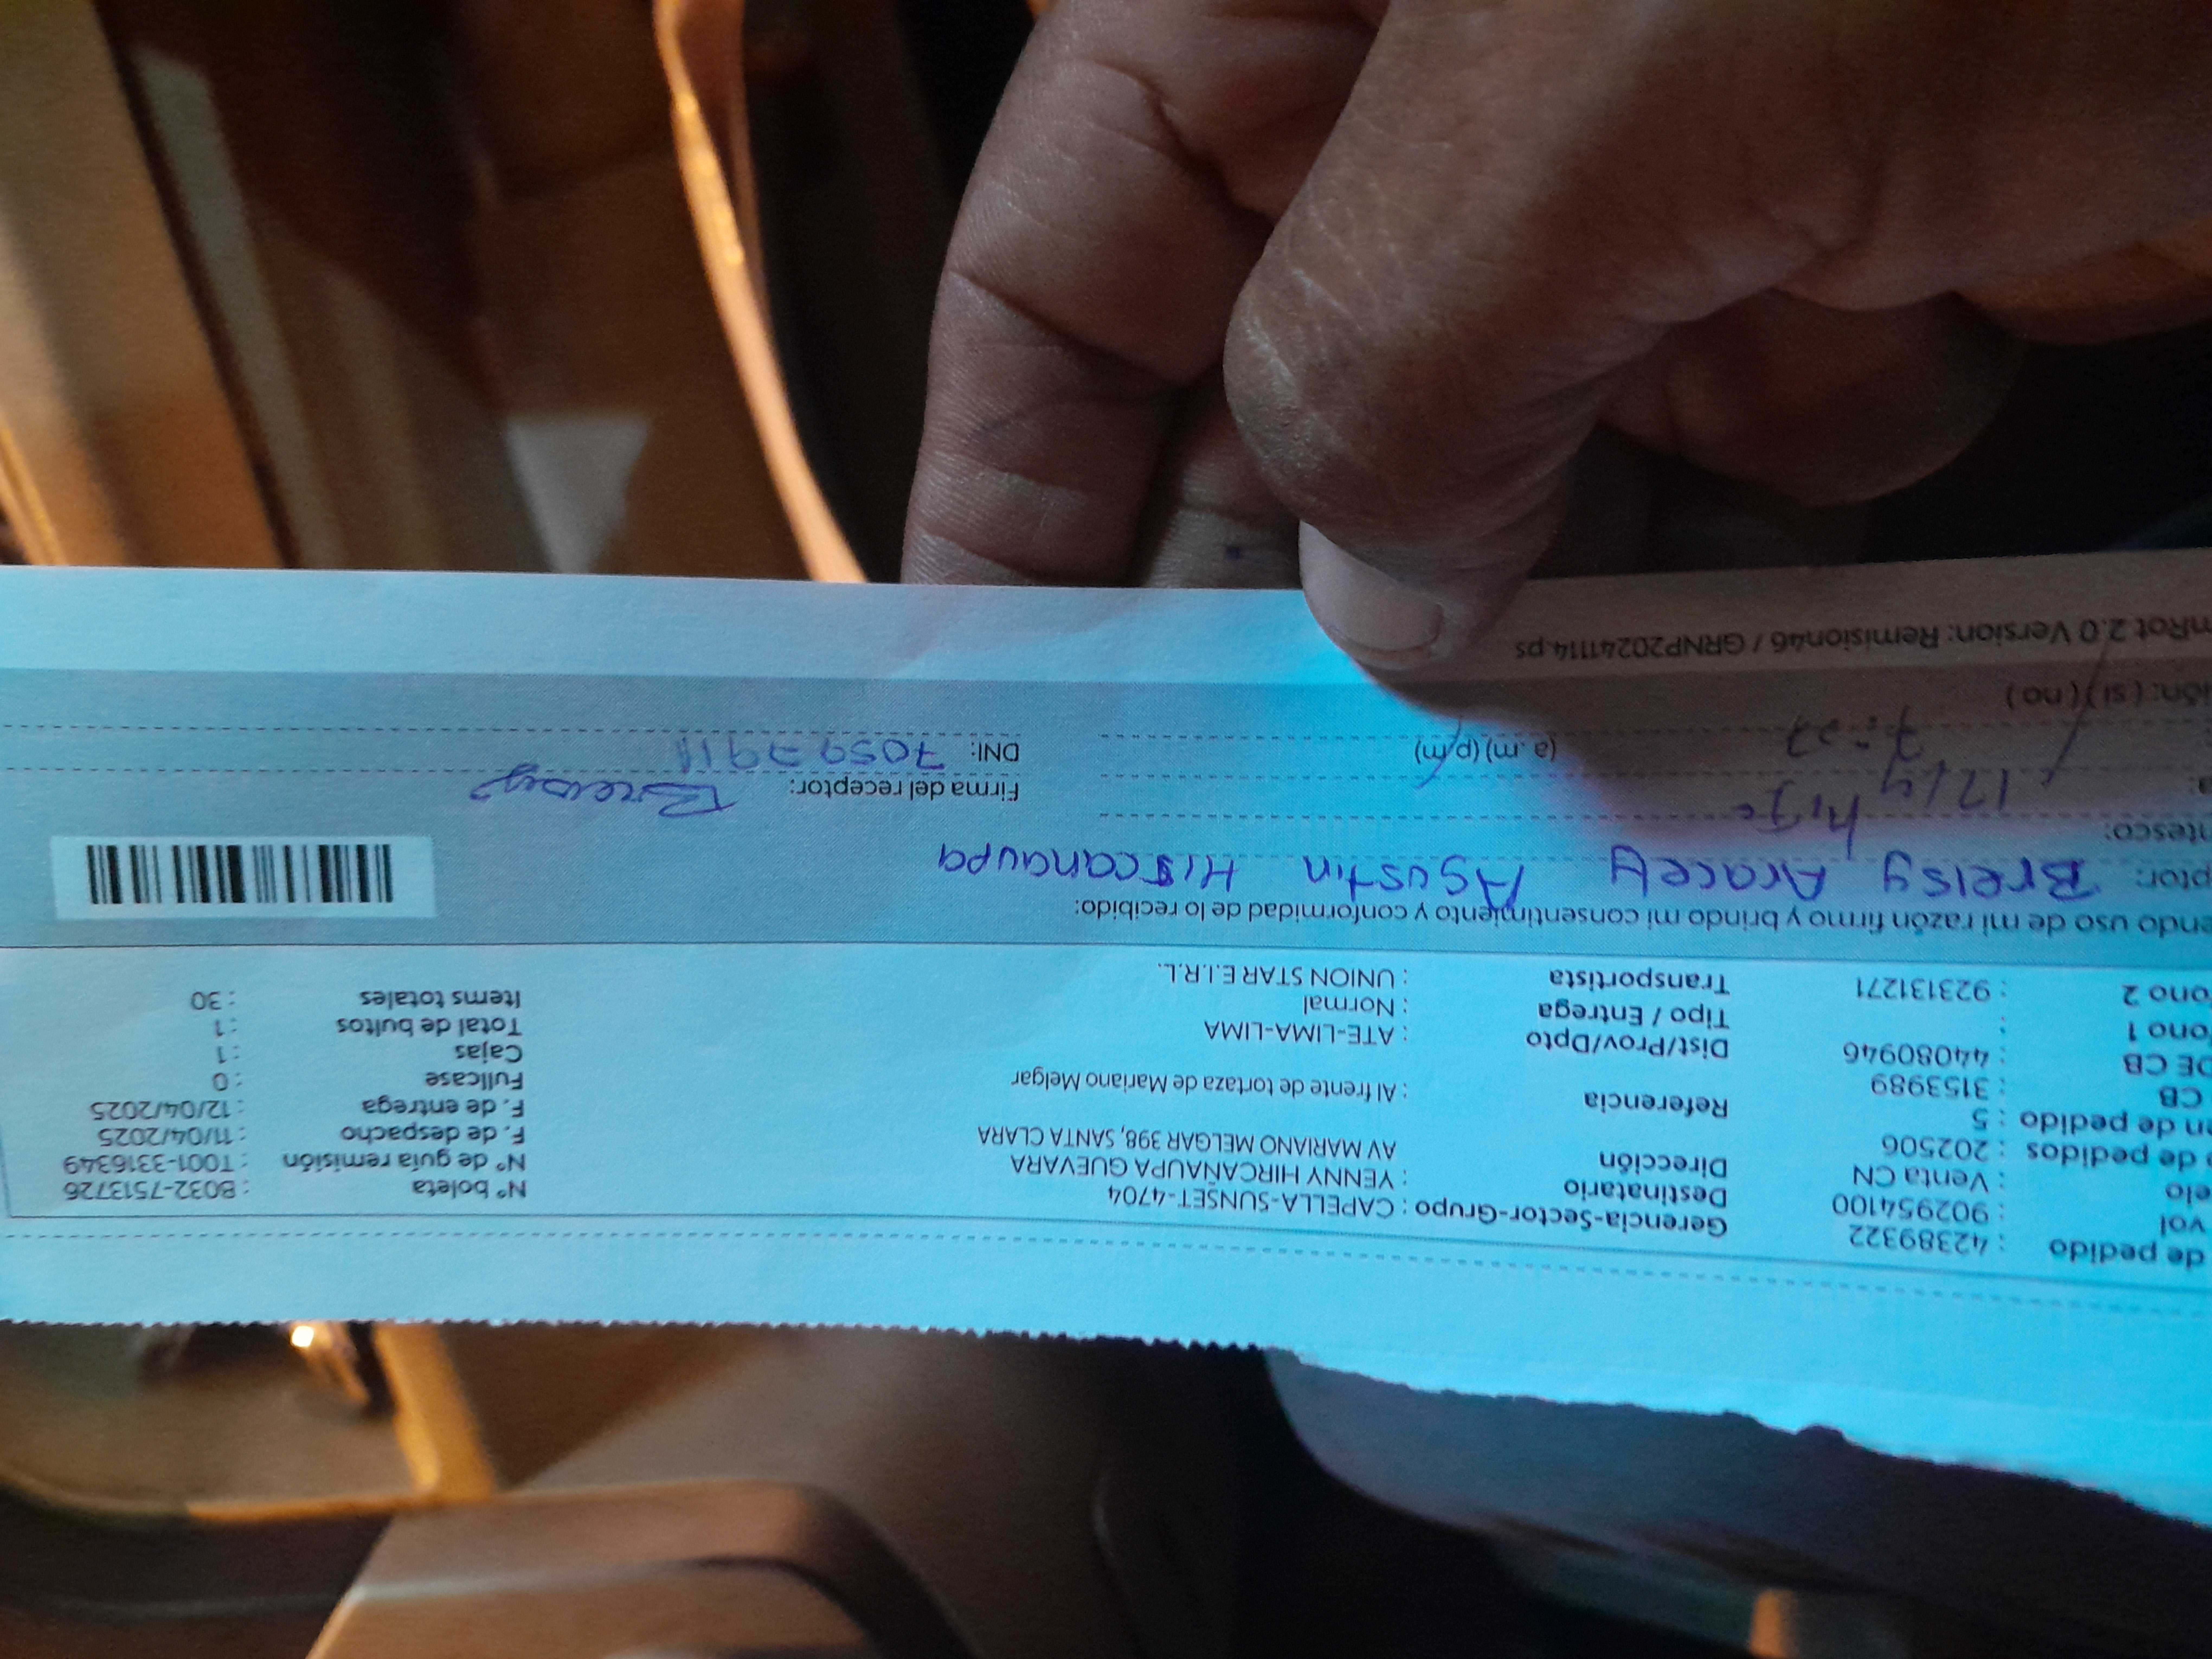 de pedido : 42389322
vol : 902954100
elo : Venta CN
de pedidos : 202506
en de pedido : 5
CB : 3153989
DE CB : 44080946
ono 1 :
ono 2 : 923131271
Gerencia-Sector-Grupo : CAPELLA-SUNSET-4704
Destinatario : YENNY HIRCAÑAUPA GUEVARA
Dirección AV MARIANO MELGAR 398, SANTA CLARA
Referencia : Al frente de tortaza de Mariano Melgar
Dist/Prov/Dpto : ATE-LIMA-LIMA
Tipo / Entrega : Normal
Transportista : UNION STAR E.I.R.L.
N° boleta : B032-7513726
N° de guía remisión : T001-3316349
F. de despacho : 11/04/2025
F. de entrega : 12/04/2025
Fullcase : 0
Cajas : 1
Total de bultos : 1
Items totales : 30
endo uso de mi razón firmo y brindo mi consentimiento y conformidad de lo recibido:
ptor: Breisy Aracely Agustin Hircanaupa
ntesco: hija
a: 12/4
7:27 (a.m) (p.m)
Firma del receptor: Breisy
DNI:
ión: ( si ) ( no )
mRot 2.0 Version: Remision46 / GRNP20241114.ps